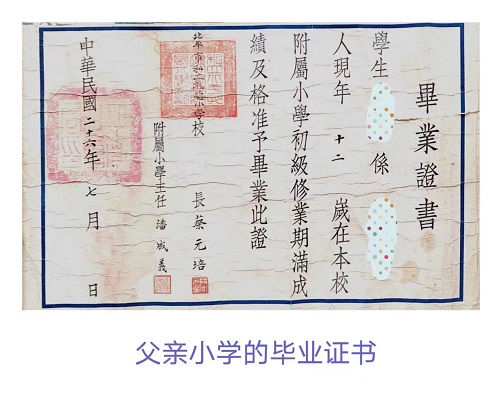 畢業證書
學生 係
人現年 十二 歲在本校
附屬小學初級修業期滿成
績及格准予畢業此證
校長蔡元培
附屬小學主任潘成義
中華民國二十六年七月 日
父亲小学的毕业证书